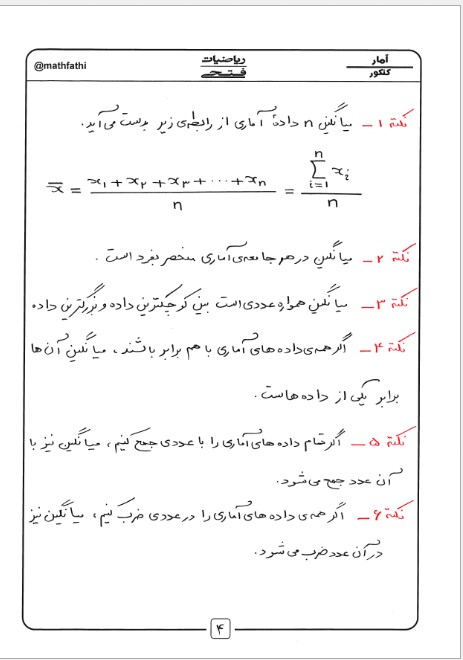 آمار
کنکور
ریاضیات
فتحی
@mathfathi
نکتهٔ ۱ـ میانگین n دادهٔ آماری از رابطه‌ی زیر بدست می‌آید.
x̄ = (x₁ + x₂ + x₃ + ⋯ + xₙ) / n = (∑ᵢ₌₁ⁿ xᵢ) / n
نکتهٔ ۲ـ میانگین در هر جامعه‌ی آماری منحصر بفرد است.
نکتهٔ ۳ـ میانگین همواره عددی است بین کوچکترین داده و بزرگترین داده
نکتهٔ ۴ـ اگر همه‌ی داده های آماری با هم برابر باشند، میانگین آن ها
برابر یکی از داده هاست.
نکتهٔ ۵ـ اگر تمام داده های آماری را با عددی جمع کنیم، میانگین نیز با
آن عدد جمع می شود.
نکتهٔ ۶ـ اگر همه‌ی داده های آماری را در عددی ضرب کنیم، میانگین نیز
در آن عدد ضرب می شود.
۴